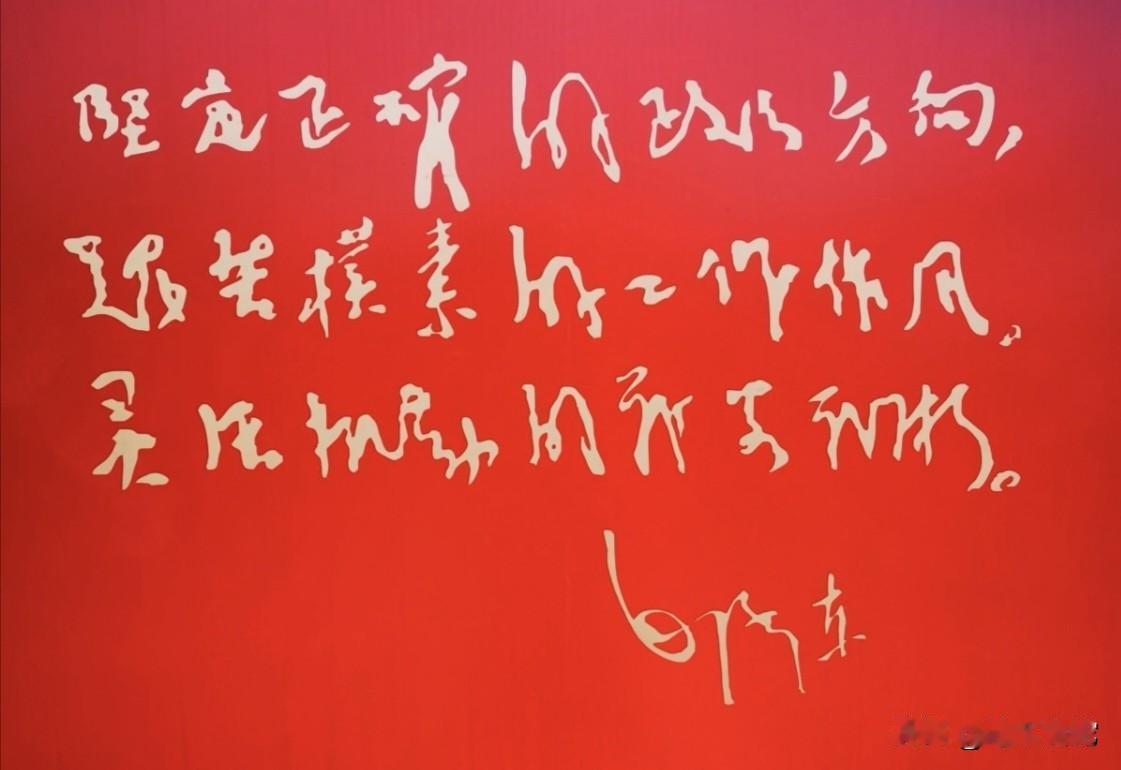 堅定正確的政治方向,
艰苦樸素的工作作风。
灵活机动的战略战术。
毛泽东